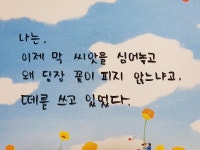 나는.
이제 막 씨앗을 심어놓고
왜 당장 꽃이 피지 않느냐고.
떼를 쓰고 있었다.